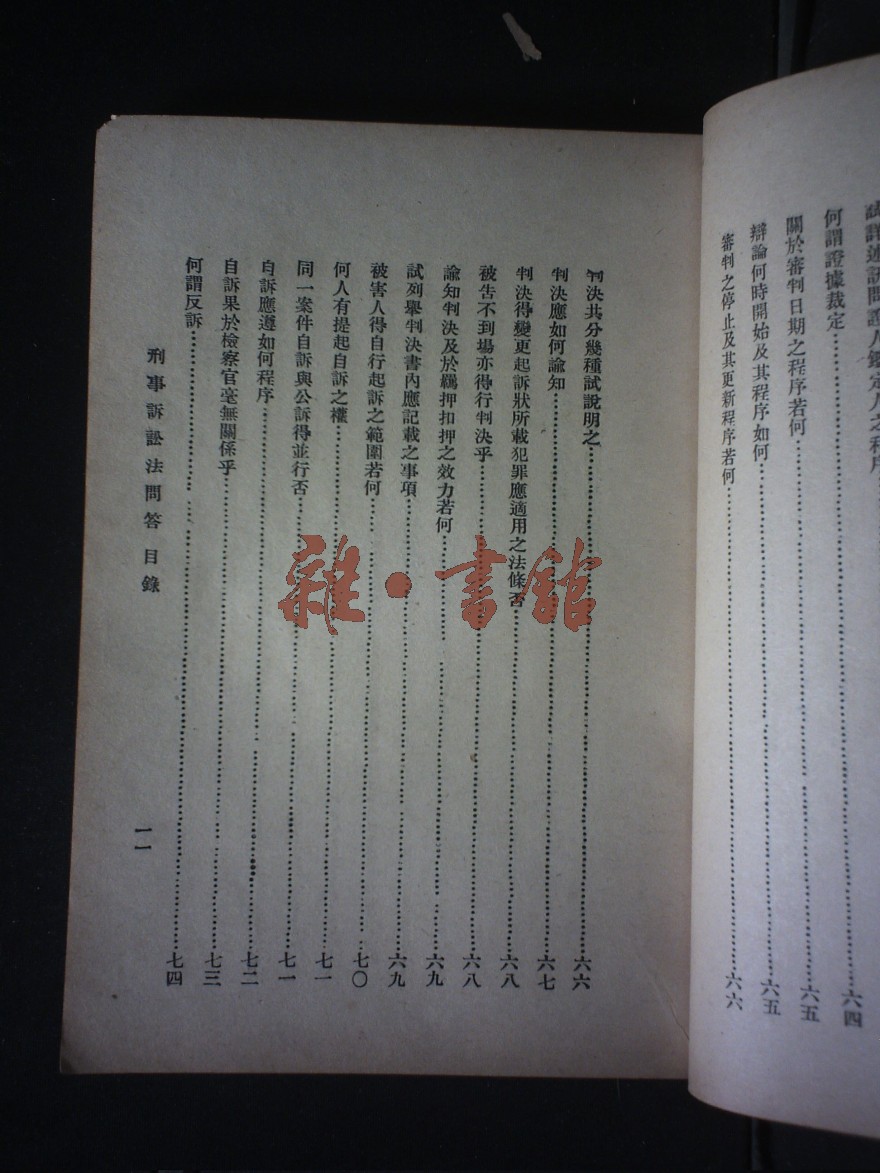 試詳述訊問證人鑑定人之程序
何謂證據裁定……六四
關於審判日期之程序若何……六五
辯論何時開始及其程序如何……六五
審判之停止及其更新程序若何……六六
判決共分幾種試說明之……六六
判決應如何諭知……六七
判決得變更起訴狀所載犯罪應適用之法條否……六八
被告不到場亦得行判決乎……六八
諭知判決及於羈押扣押之效力若何……六九
試列舉判決書內應記載之事項……六九
被害人得自行起訴之範圍若何……七〇
何人有提起自訴之權……七一
同一案件自訴與公訴得並行否……七一
自訴應遵如何程序……七二
自訴果於檢察官毫無關係乎……七三
何謂反訴……七四
刑事訴訟法問答 目錄
一一
雜·書館